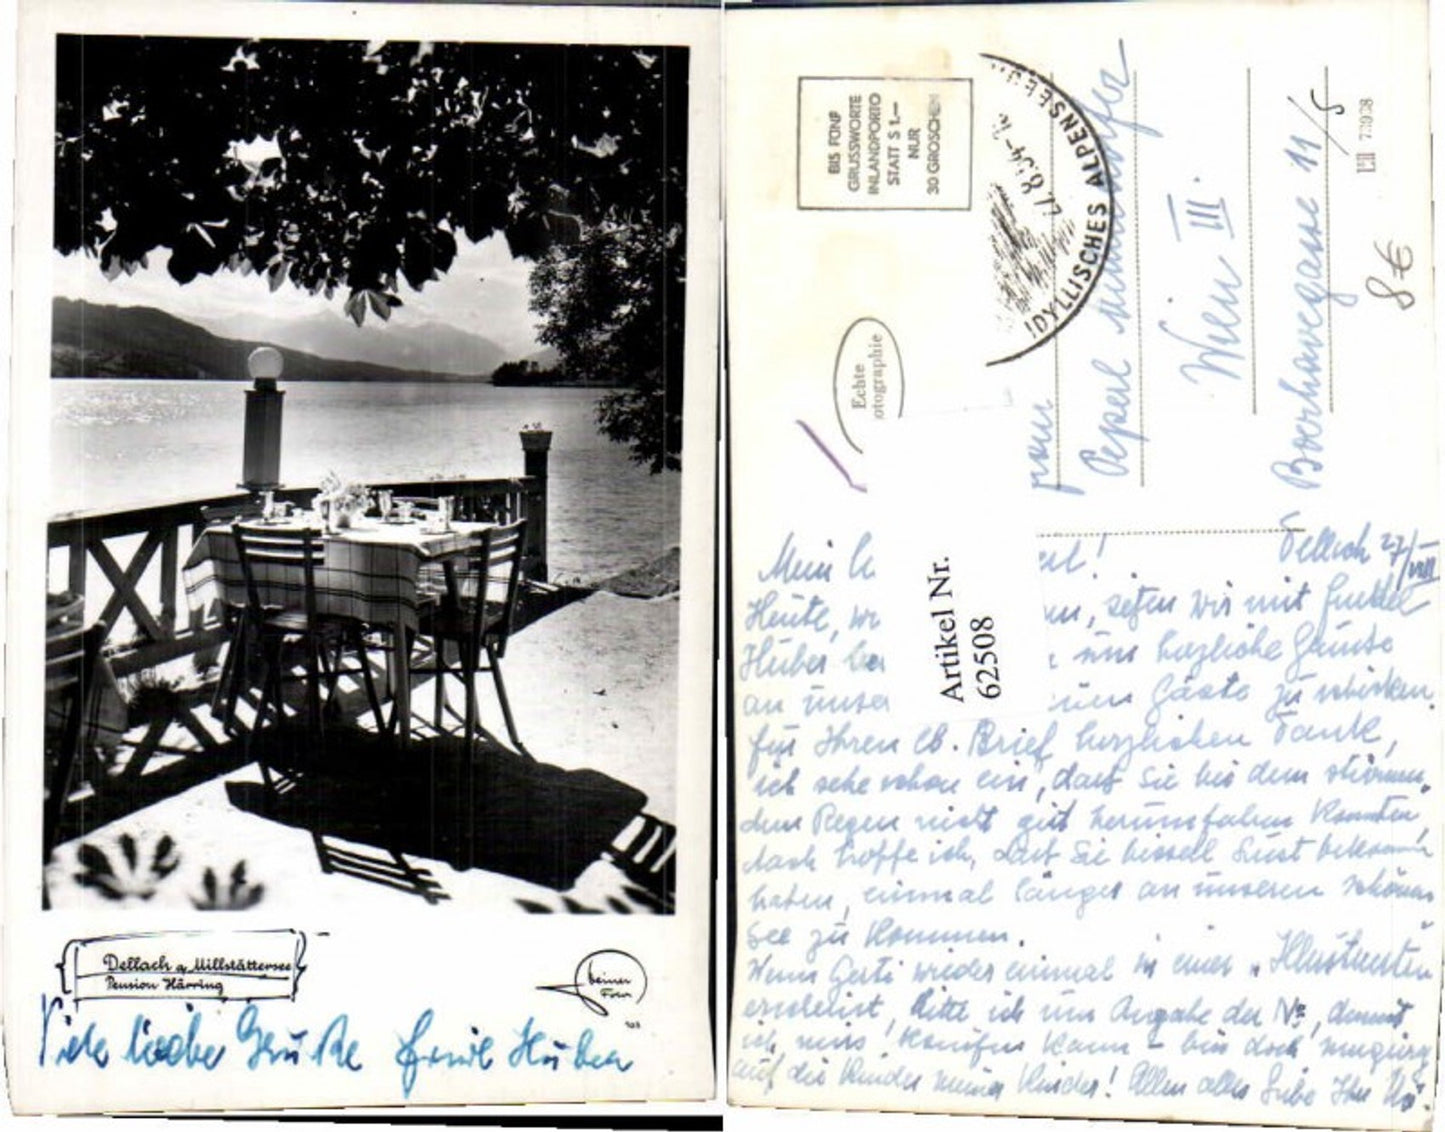 Dellach a. Millstättersee
Pension Härring
103
Viele liebe Grüße Huber
BIS FÜNF
GRUSSWORTE
INLANDPORTO
STATT S 1.—
NUR
30 GROSCHEN
IDYLLISCHES ALPENSEEBAD
21.8.54
Echte
otographie
Pepserl
Wien III.
Boerhavegasse 11/5
8€
Artikel Nr.
62508
Mein
Dellach 27/VIII
Heute, wir mit
Huber uns herzliche Grüsse
an unser Gäste zu schicken.
für Ihren lb. Brief herzlichen Dank,
ich sehe schon ein, dass Sie bei dem ström.
dem Regen nicht gut herumfahren konnten,
doch hoffe ich, dass Sie bissell Lust bekommen
haben, einmal länger an unseren schönen
See zu kommen.
Wenn Gerti wieder einmal in einer „Illustrierten
erscheint, bitte ich um Angabe der No, damit
ich mir kaufen kann – bin doch neugierig
auf die Kinder meiner Kinder! Allen alles Liebe Ihre